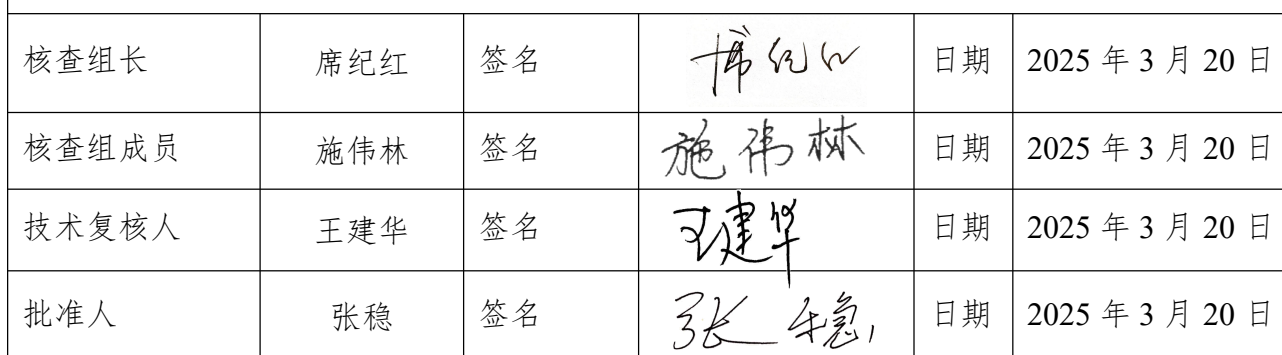 核查组长 席纪红 签名 席纪红 日期 2025 年 3 月 20 日
核查组成员 施伟林 签名 施伟林 日期 2025 年 3 月 20 日
技术复核人 王建华 签名 王建华 日期 2025 年 3 月 20 日
批准人 张稳 签名 张稳 日期 2025 年 3 月 20 日